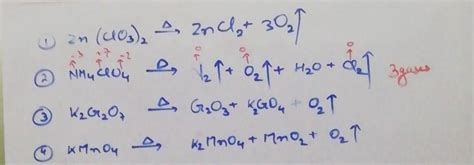 ① Zn(ClO3)2 —Δ→ ZnCl2 + 3O2↑
-3 +7 -2 0 0 0
② NH4ClO4 —Δ→ N2↑ + O2↑ + H2O + Cl2↑ 3 gases
③ K2Cr2O7 —Δ→ Cr2O3 + K2CrO4 + O2↑
④ KMnO4 —Δ→ K2MnO4 + MnO2 + O2↑